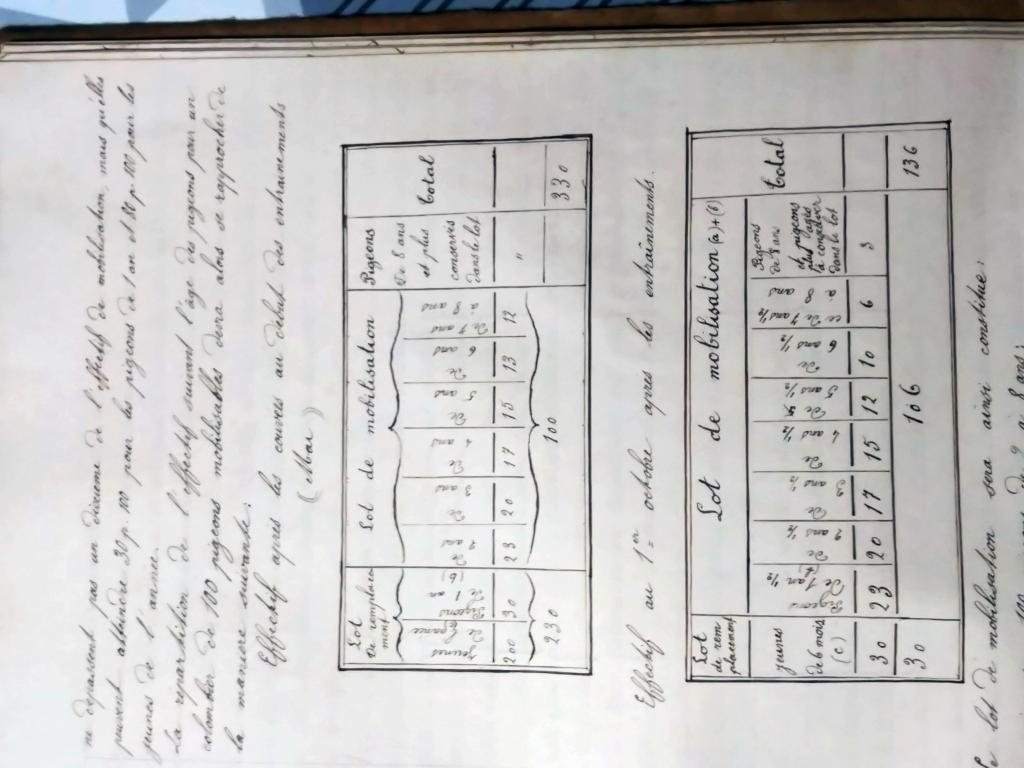 ne dépassent pas un dixième de l'effectif de mobilisation, mais qu'elles
peuvent atteindre 30 p. 100 pour les pigeons de 1 an et 80 p. 100 pour les
jeunes de l'année.
La répartition de l'effectif suivant l'âge des pigeons pour un
colombier de 100 pigeons mobilisables devra alors se rapprocher de
la manière suivante:
Effectif après les couvées au début des entrainements
(Mai)
Lot de remplacement
Lot de mobilisation
Pigeons De 8 ans et plus conservés dans le lot
Total
jeunes De l'année
Pigeons De 1 an (b)
De 2 ans
De 3 ans
De 4 ans
De 5 ans
De 6 ans
De 7 ans à 8 ans
200 30 23 20 17 15 13 12 "
230 100 330
Effectif au 1er octobre après les entraînements.
Lot de rem placement
Lot de mobilisation (a)+(b)
Total
jeunes de 6 mois (c)
Pigeons De 1 an 1/2 (b)
De 2 ans 1/2
De 3 ans 1/2
De 4 ans 1/2
De 5 ans 1/2
De 6 ans 1/2
de 7 ans 1/2 à 8 ans
Pigeons de 8 ans et pigeons plus âgés à conserver dans le lot
30 23 20 17 15 12 10 6 3
30 106 136
Le lot de mobilisation sera ainsi constitué:
100 pigeons de 2 à 8 ans;